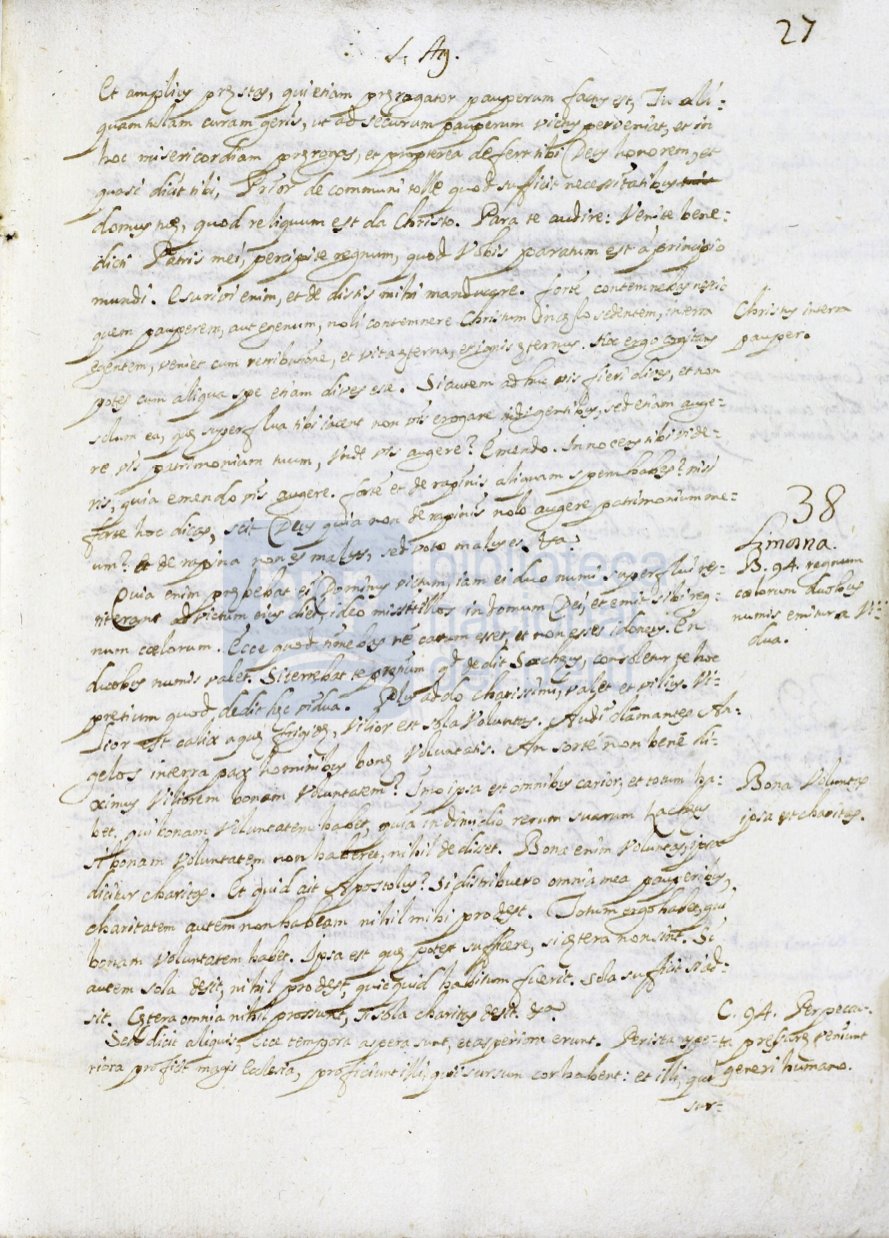 27
S. Ag.
Et amplius pręstas, qui etiam pręrogator pauperum factus est, Tu ali=
quam tulam curam geris, ut ad securum pauperum victus perveniat, et in
hoc misericordiam pręrogas, et propterea defert tibi Deus honorem, et
quasi dicit tibi, Prior de communi tolle quod sufficit necessitatibus
domus tuę, quod reliquum est da Christo. Para te audire: Venite bene=
dicti Patris mei, percipite regnum, quod vobis paratum est a principio
mundi. Esurivi enim, et dedistis mihi manducare. forte contemnebas
quem pauperem, aut egenum, noli contemnere Christum in cęlo sedentem, in terra
egentem, veniet cum retributione, et vita ęterna, et ignis ęternus. Hoc ergo cogitans
potes cum aliqua spe etiam dives esse. Si autem ad huc vis fieri dives, et non
solum ea, quę superflua tibi iacent non vis erogare indigentibus, sed etiam auge=
re vis patrimonium tuum, unde vis augere? Emendo. Innocens tibi vide=
ris, quia emendo vis augere. forte et de rapinis aliquam spem habes? nisi
forte hoc dicas, scit Deus quia non de rapinis nolo augere patrimonium me=
um? Et de rapina non es malus, sed voto malus es
Quia enim pręhebat ei Dominus victum, iam ei duo numi superflui re=
in domum Dei, et emit sibi reg=
num cœlorum. Ecce quod timebas ne carum esset, et non esses idoneus. En
duobus numis valet. Si terrebat te pretium quod dedit Sacheus, consoletur te hoc
pretium quod dedit hęc vidua. Plus addo charissimi, valet et vilius. Vi=
lior est calix aquę frigidę, vilior est sola voluntas. Audi clamantes An=
gelos in terra pax hominibus bonę voluntatis. An forte non bene di=
ximus viliorem bonam voluntatem? Imo ipsa est omnibus carior, et totum ha=
bet, qui bonam voluntatem habet, quia in dimidio rerum suarum Zacheus
si bonam voluntatem non haberet, nihil dedisset. Bona enim voluntas, ipsa
dicitur charitas. Et quid ait Apostolus? Si distribuero omnia mea pauperibus,
charitatem autem non habeam nihil mihi prodest. Totum ergo habet, qui
bonam voluntatem habet. Ipsa est quę potest sufficere, si cętera non sint. Si
autem sola desit, nihil prodest, quicquid habitum fuerit. Sola sufficit si ad=
sit. Cętera omnia nihil prosunt, si sola charitas desit.
Sed dicit aliquis, Ecce tempora aspera sunt, et asperiora erunt. Per ista aspe=
riora proficit magis Ecclesia, proficiunt illi, qui sursum cor habent: et illi, qui
sur=
Christus in terra
pauper.
38
Limosna.
B. 94. regnum
cœlorum duobus
numis emitur a vi=
dua.
Bona Voluntas
ipsa est charitas.
C. 94. Per pecca=
ta pressurę veniunt
generi humano.
biblioteca
nacional
del perú